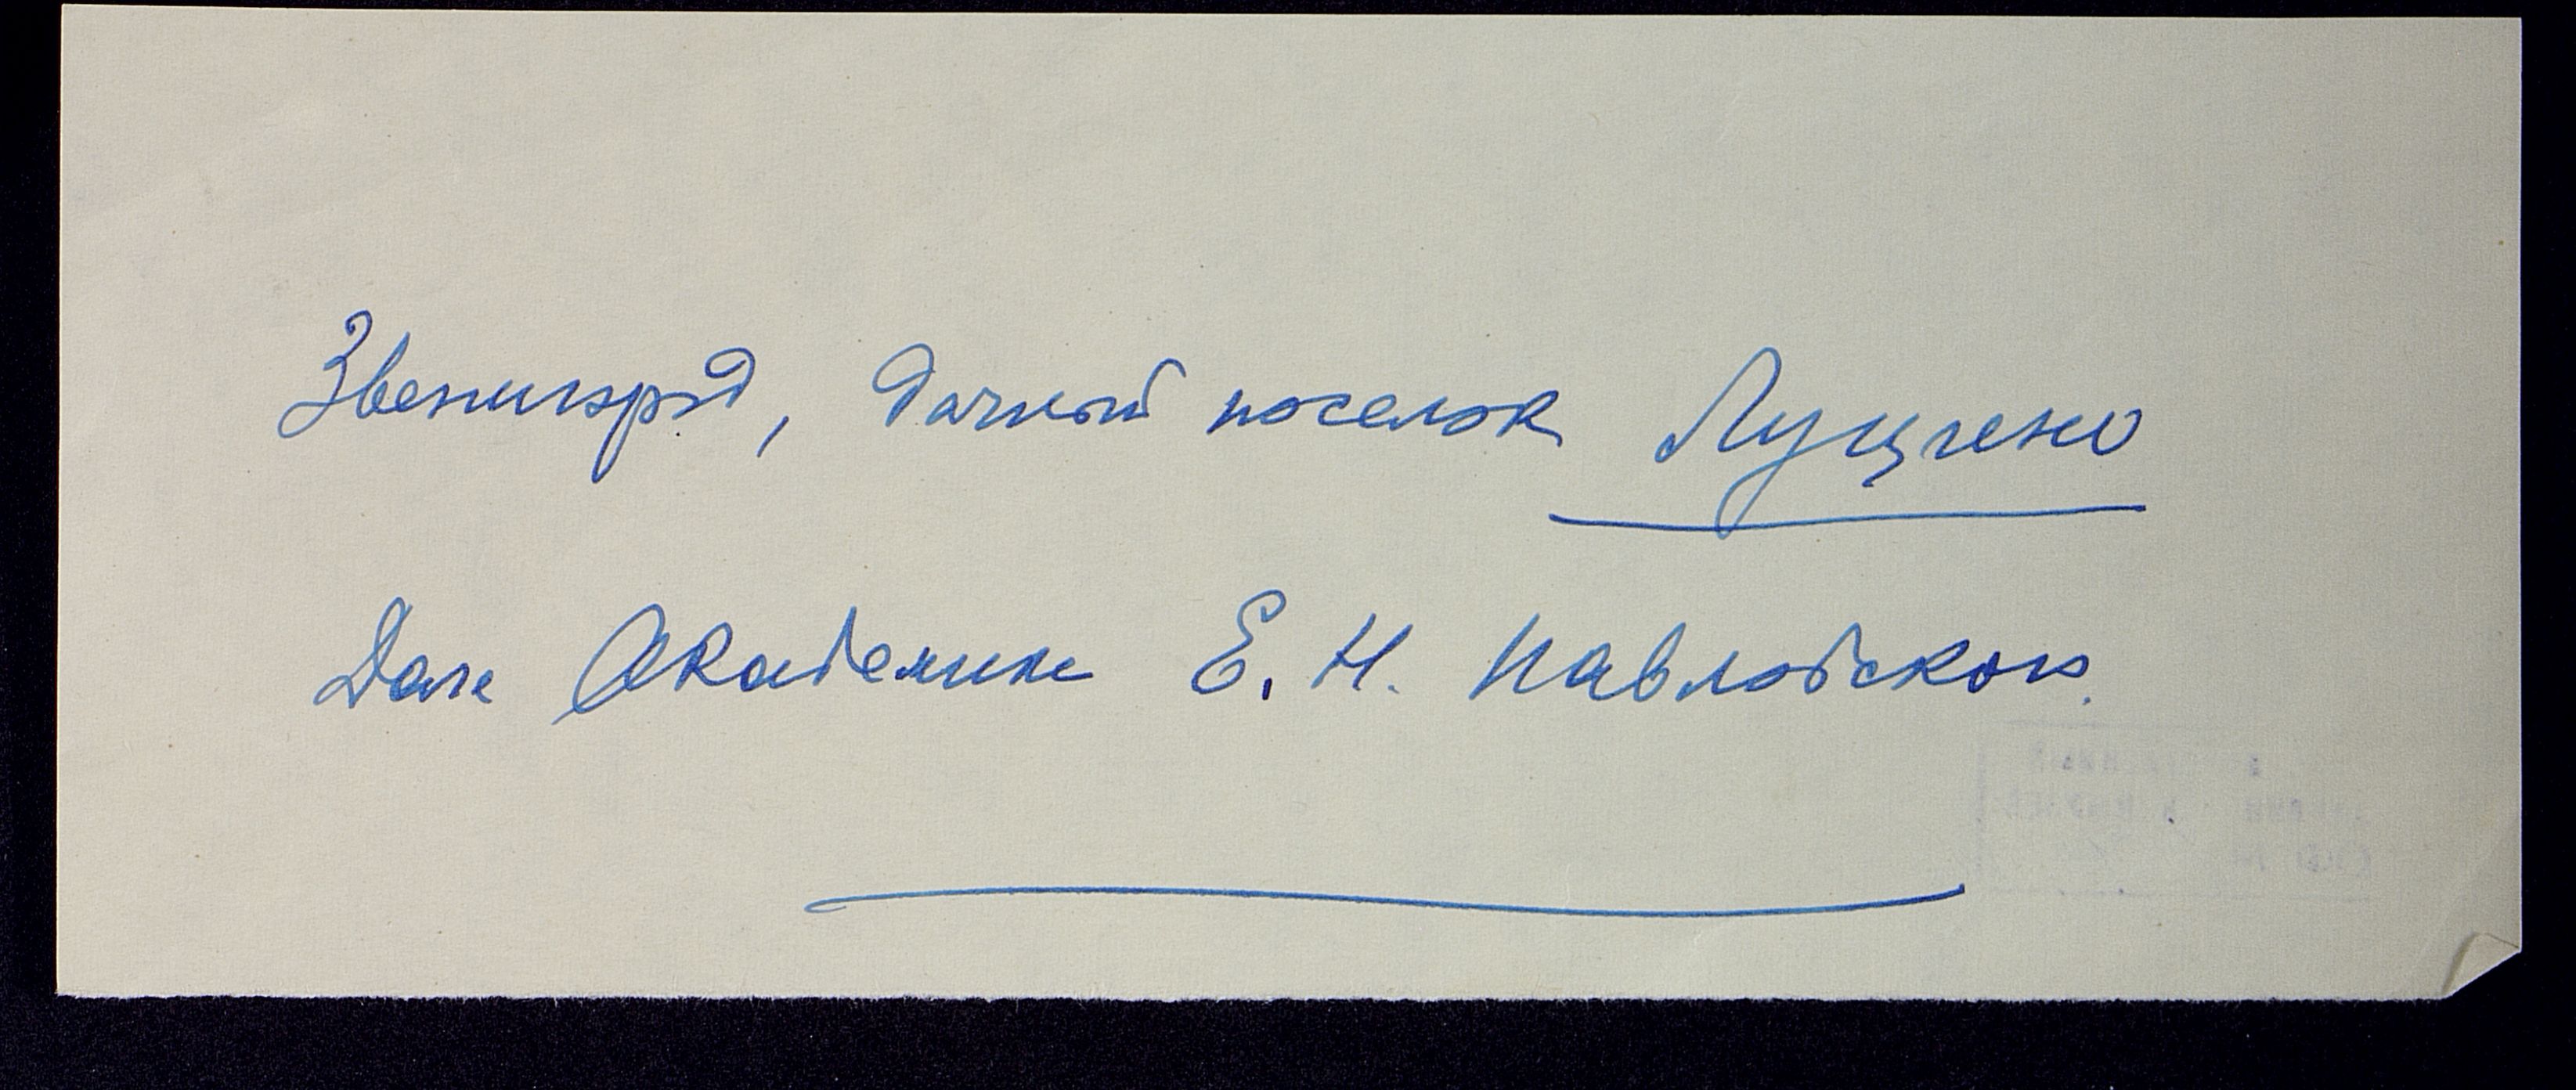 Звенигород, дачный поселок Луцчено
Дача Академика Е. Н. Павловского.